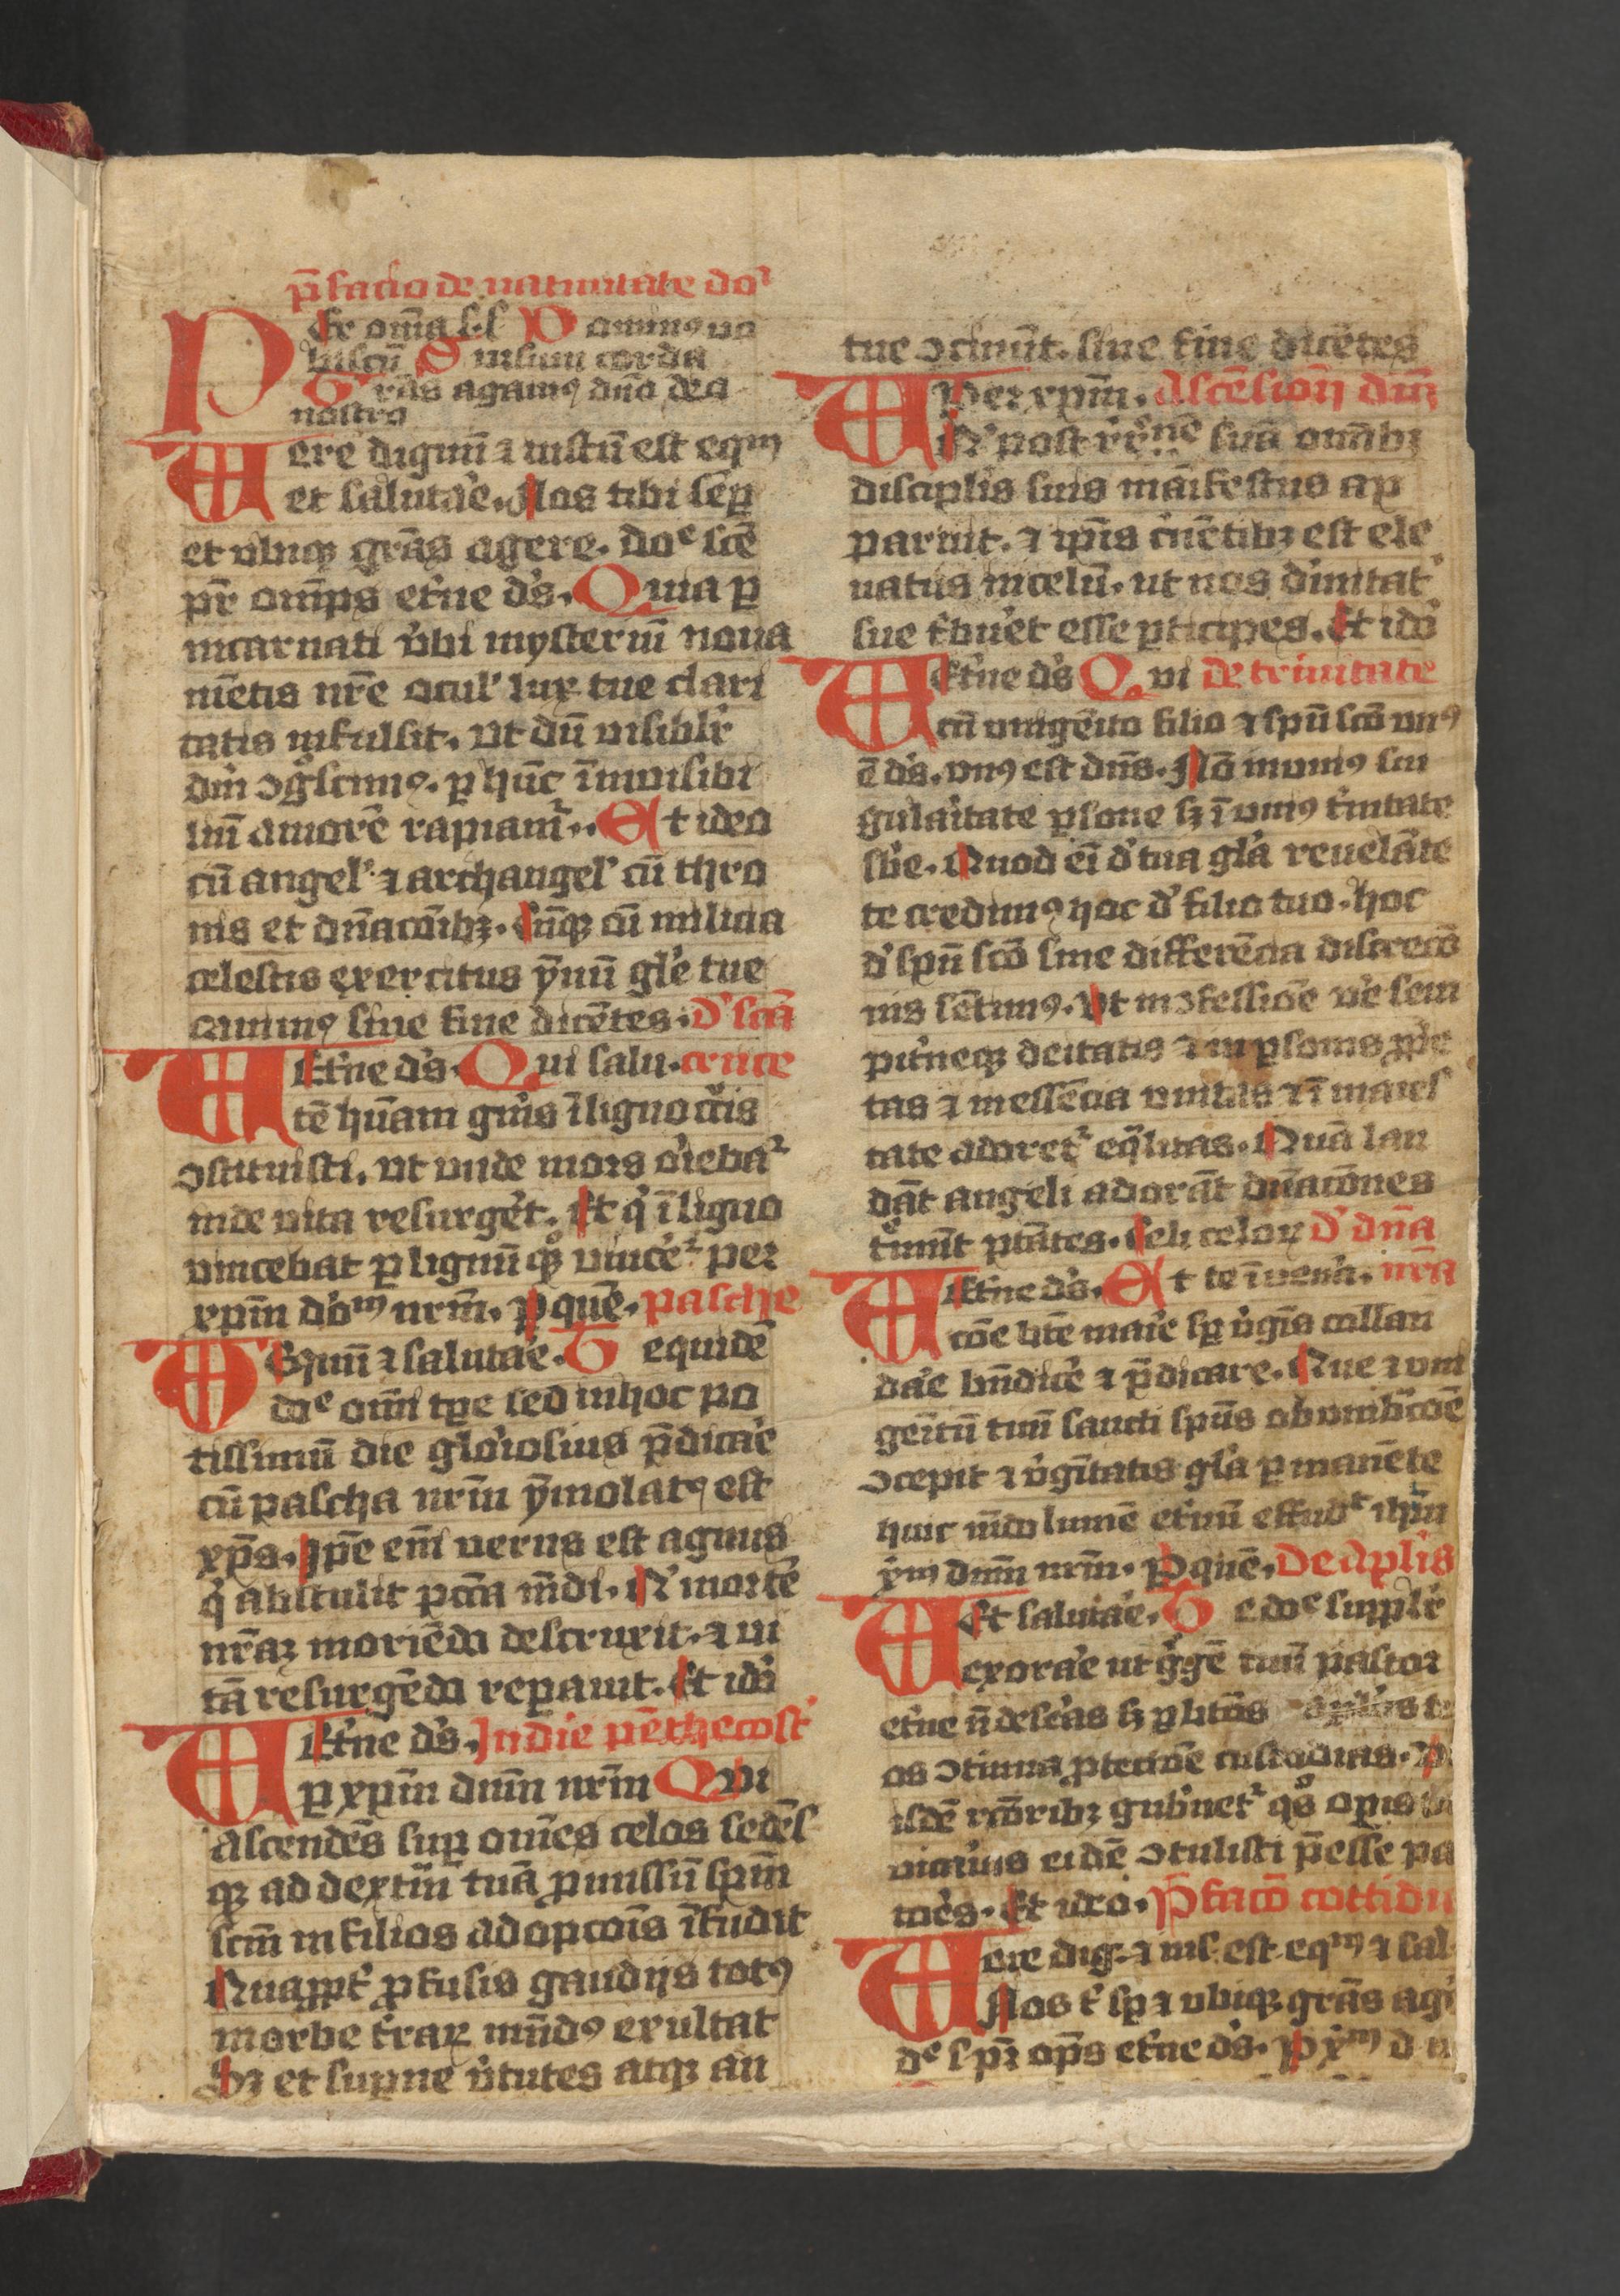 p̄facio de natiuitate do᷑
Per om̄ia s.s Dominꝰ uo
biscū Sursum corda
Gr̄as agamꝰ dn̄o deo
nostro
Uere dignū ⁊ iustū est eqᵐ
et salutar̄e. Nos tibi sēp̄
et ubiqꝫ gr̄as agere. do᷑e sc̄e
pr̄ om̄ps et'ne d's. Quia ꝑ
incarnati v'bi mysteriū noua
mētis nr̄e ocul' lux tue clari
tatis infulsit. Vt dū uisibilr̄
dm̄ ꝯgͦscimꝰ. ꝑ hūc īinuisibi
liū amorē rapiam᷑. Et ideo
cū angel' ⁊ archangel' cū thro
nis et dn̄acōibꝫ. Cūqꝫ cū milicia
celestis exercitus ȳnū gl'e tue
canimꝰ sine fine dicētes. D' sc̄a
Et'ne d's. Qui salu. cruce
tē hūani gn̄is ī ligno cͬcis
ꝯstituisti. ut unde mors oͥeba᷑
inde uita resurgeͬt. Et qͥ ī ligno
uincebat ꝑ lignū qͦqꝫ uincēr᷑ per
xpm̄ d'oᵐ nrm̄. ꝑ quē. pasche
Eqūu ⁊ salutar̄e. Te quidē
doᵉ om̄i tꝑe sed in hoc po
tissimū die glo'iosius p̄dicar̄e
cū pascha nrm̄ ȳmolatꝰ est
xp̄s. Ip̄e em̄ uerus est agnus
qͥ abstulit pc̄ca mūdi. Qͥ mortē
nr̄aꝫ moriēdo destruxit. ⁊ ui
tā resurgēdo repauit. Et idō
Et'ne d's. In die pēthecost'
ꝑ xpm̄ dnm̄ nrm̄ Qui
Ascendēs suꝑ om̄es celos sedēs
qꝫ ad dextͣm tuā ꝓmissū spm̄
scm̄ in filios adopcōis īfudit
Quaꝓpt' ꝓfusis gaudijs totꝰ
in orbe t'raꝝ mūdꝰ exultat
Sꝫ et supne v'tutes atqꝫ an
tue ꝯcinūt. sine fine dicētes
Per xpm̄. Ascēsioīs dm̄
Qͥ post re͛rⁿᵉ suā om̄ibꝫ
discipl'is suis māifestus ap
paruit. ⁊ ip̄is c͛nētibꝫ est ele
uatus in celū. ut nos d'initat'
sue t'bu͛et esse ꝑticipes. Et idō
Et'ne d's Qui de trinitate
cū unigēito filio ⁊ spū scō unꝰ
ē d's. unꝰ est dn̄s. Nō in unius sin
gulaͥtate ꝑsone sꝫ ī unius t'nitate
sb'e. Quod ei d' tua gl'a reuelāte
te credimꝰ hoc d' filio tuo. hoc
d' spū scō sine differēcia discrecō
nis sētimꝰ. Vt in ꝯfessiōe u'e sem
pit'neqꝫ deitatis ⁊ in ꝑsonis ꝓp'e
tas ⁊ in essēcia unitas ⁊ ī maies
tate adoret᷑ eqͣlitas. Quā lau
dāt angeli adorāt dn̄acōnes
tͤmūt ptātes. Celi celoꝝ D' dn̄a
Et'ne d's. Et te ī uen'a. nr̄a
cōe bt̄e mar̄ie sꝑ v'gīs collau
dar̄e bn̄dicē ⁊ p̄dicare. Que ⁊ uni
genitū tuū sancti spūs obumb͛cōe
ꝯcepit ⁊ v'gītatis gl'a ꝑmanēte
huic mūdo lumē et'nū effudᵗ ihm̄
xᵐ dnm̄ nrm̄. ꝑ quē. De apl'is
Et salutar̄e. Te doᵉ supplr̄
exorar̄e ut gͬgē tuū pastor
et'ne n̄ deseͬas sꝫ ꝑ btōs apl'os t
os ꝯtinua ꝓtecciōe custodias. V
isdē rcōribꝫ gub'net᷑ qͦs opis
uicarios eidē ꝯtulisti p̄esse pa
tor̄es. Et ideo. P̄facō cottidi
Uere dig. ⁊ ius. est eqᵐ ⁊ sal
Nos t' sꝑ ⁊ ubiqꝫ gr̄as ag'
dᵉ s pr̄ op̄s et'ne d's. ꝑ xᵐ d n